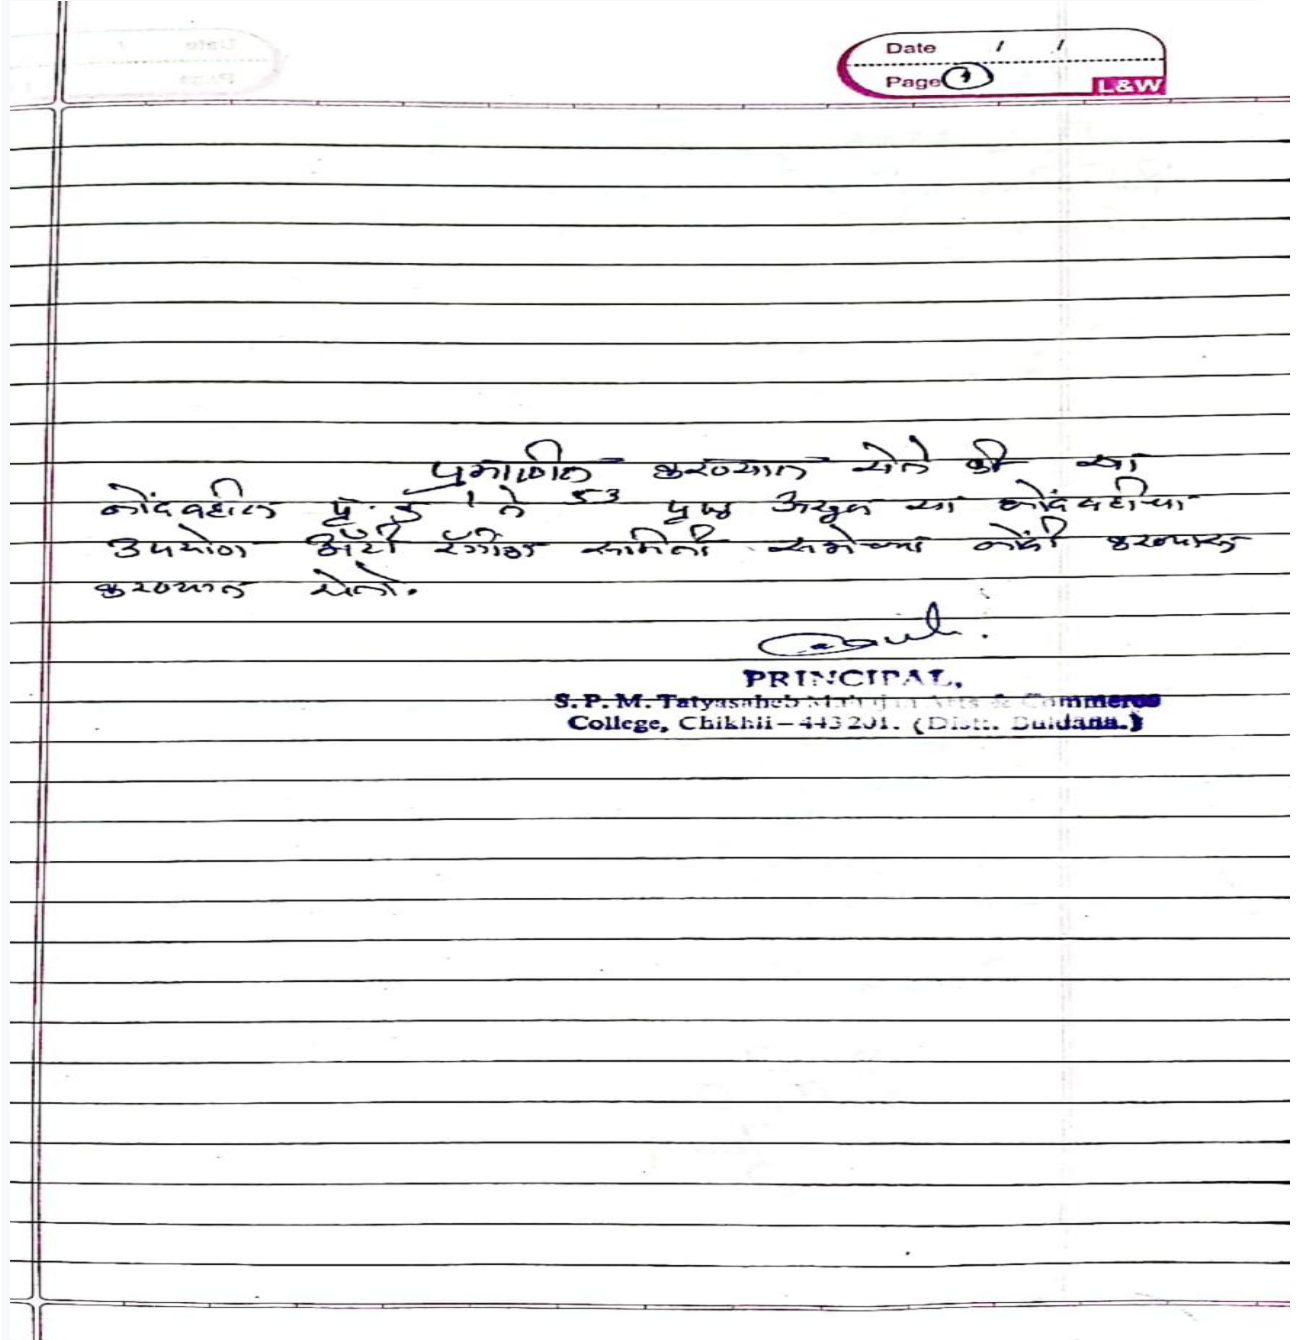 Date / /
Page 1
L&W
प्रमाणीत करण्यात येते की या
नोंदवहीत पृ. क्र. 1 ते 53 पृष्ठ असून या नोंदवहीचा
उपयोग अँटी रॅगींग समिती सभेच्या नोंदी करण्यास
करण्यात येतो.
PRINCIPAL,
S. P. M. Tatyasaheb Mahajan Arts & Commerce
College, Chikhli-443201. (Distt. Buldana.)